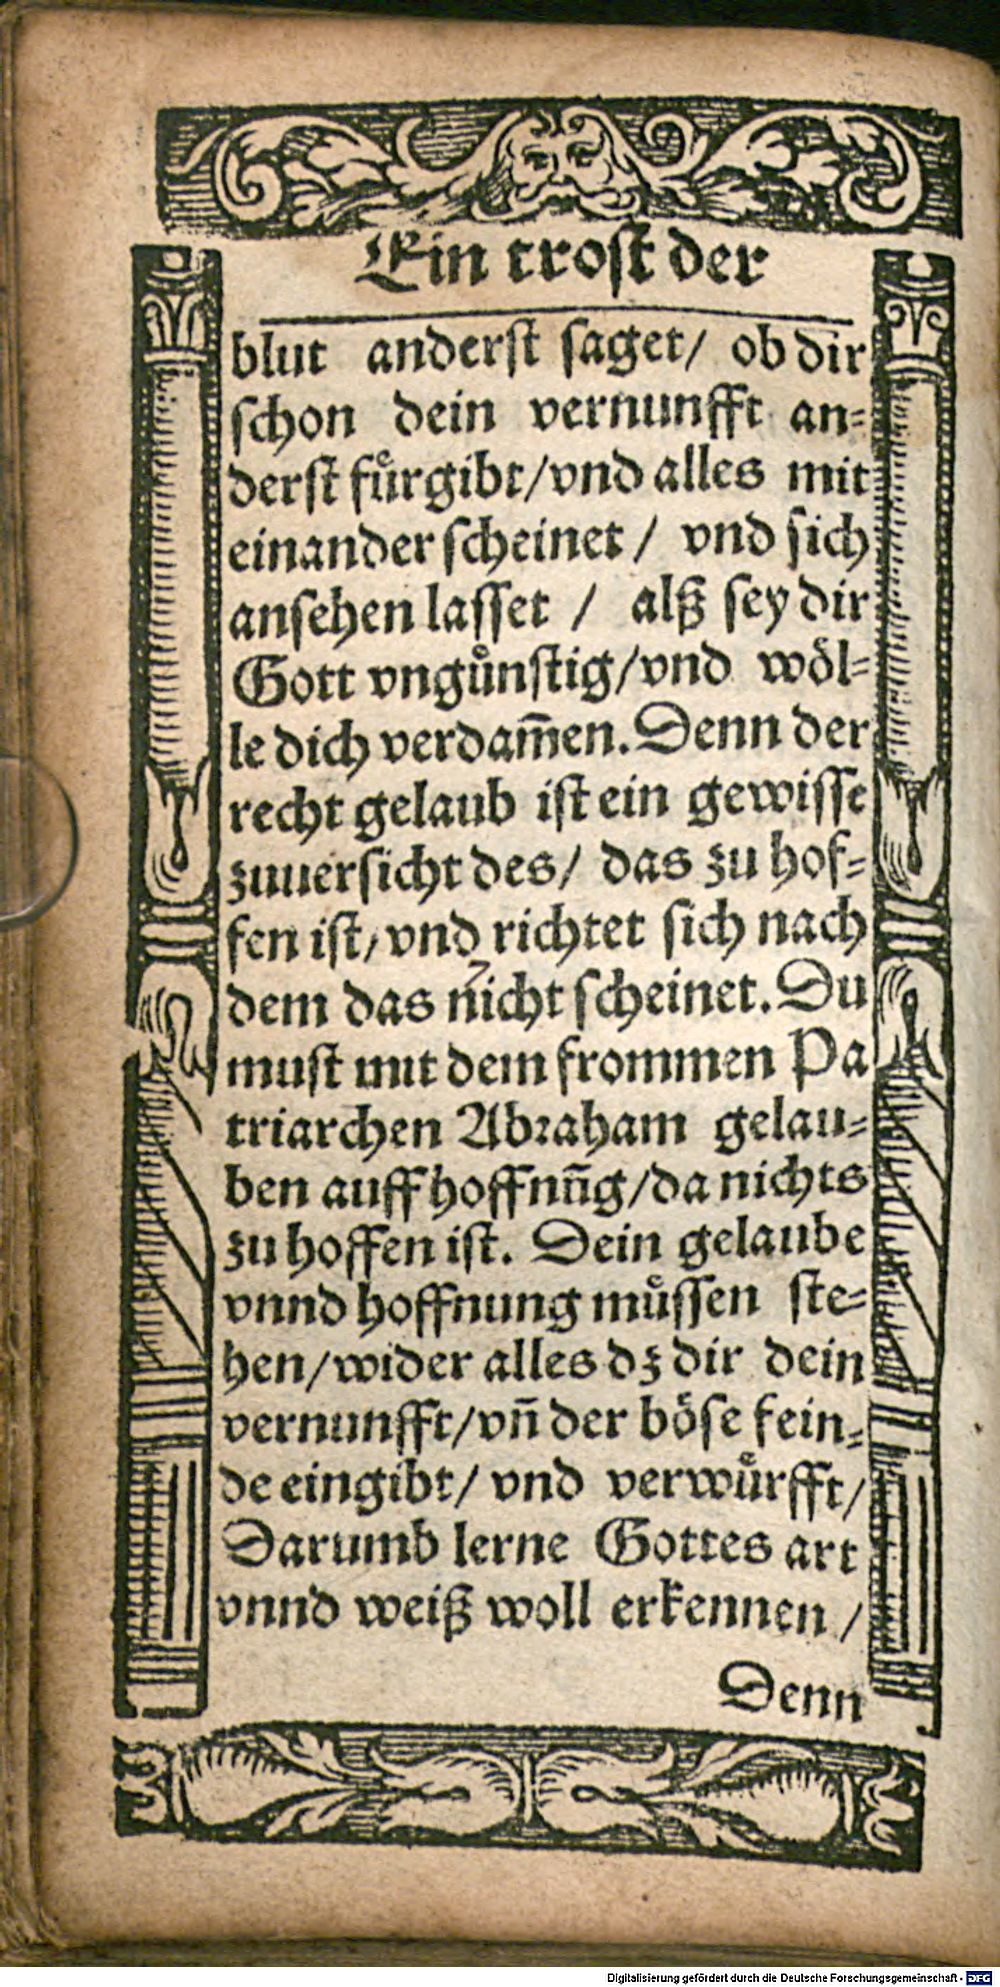 Ein troſt der
blut anderſt ſaget/ ob dir
ſchon dein vernunfft an⸗
derſt fuͤrgibt/vnd alles mit
einander ſcheinet / vnd ſich
anſehen laſſet / alß ſey dir
Gott vnguͤnſtig/vnd woͤl⸗
le dich verdam̄en. Denn der
recht gelaub iſt ein gewiſſe
zuuerſicht des/ das zu hof⸗
fen iſt/ vnd richtet ſich nach
dem das nicht ſcheinet. Du
muſt mit dem frommen Pa
triarchen Abꝛaham gelau⸗
ben auff hoffnūg/da nichts
zu hoffen iſt. Dein gelaube
vnnd hoffnung muͤſſen ſte⸗
hen/wider alles dz dir dein
vernunfft/vn̄ der boͤſe fein⸗
de eingibt/ vnd verwuͤrfft/
Darumb lerne Gottes art
vnnd weiß woll erkennen /
Denn
Digitalisierung gefördert durch die Deutsche Forschungsgemeinschaft - DFG